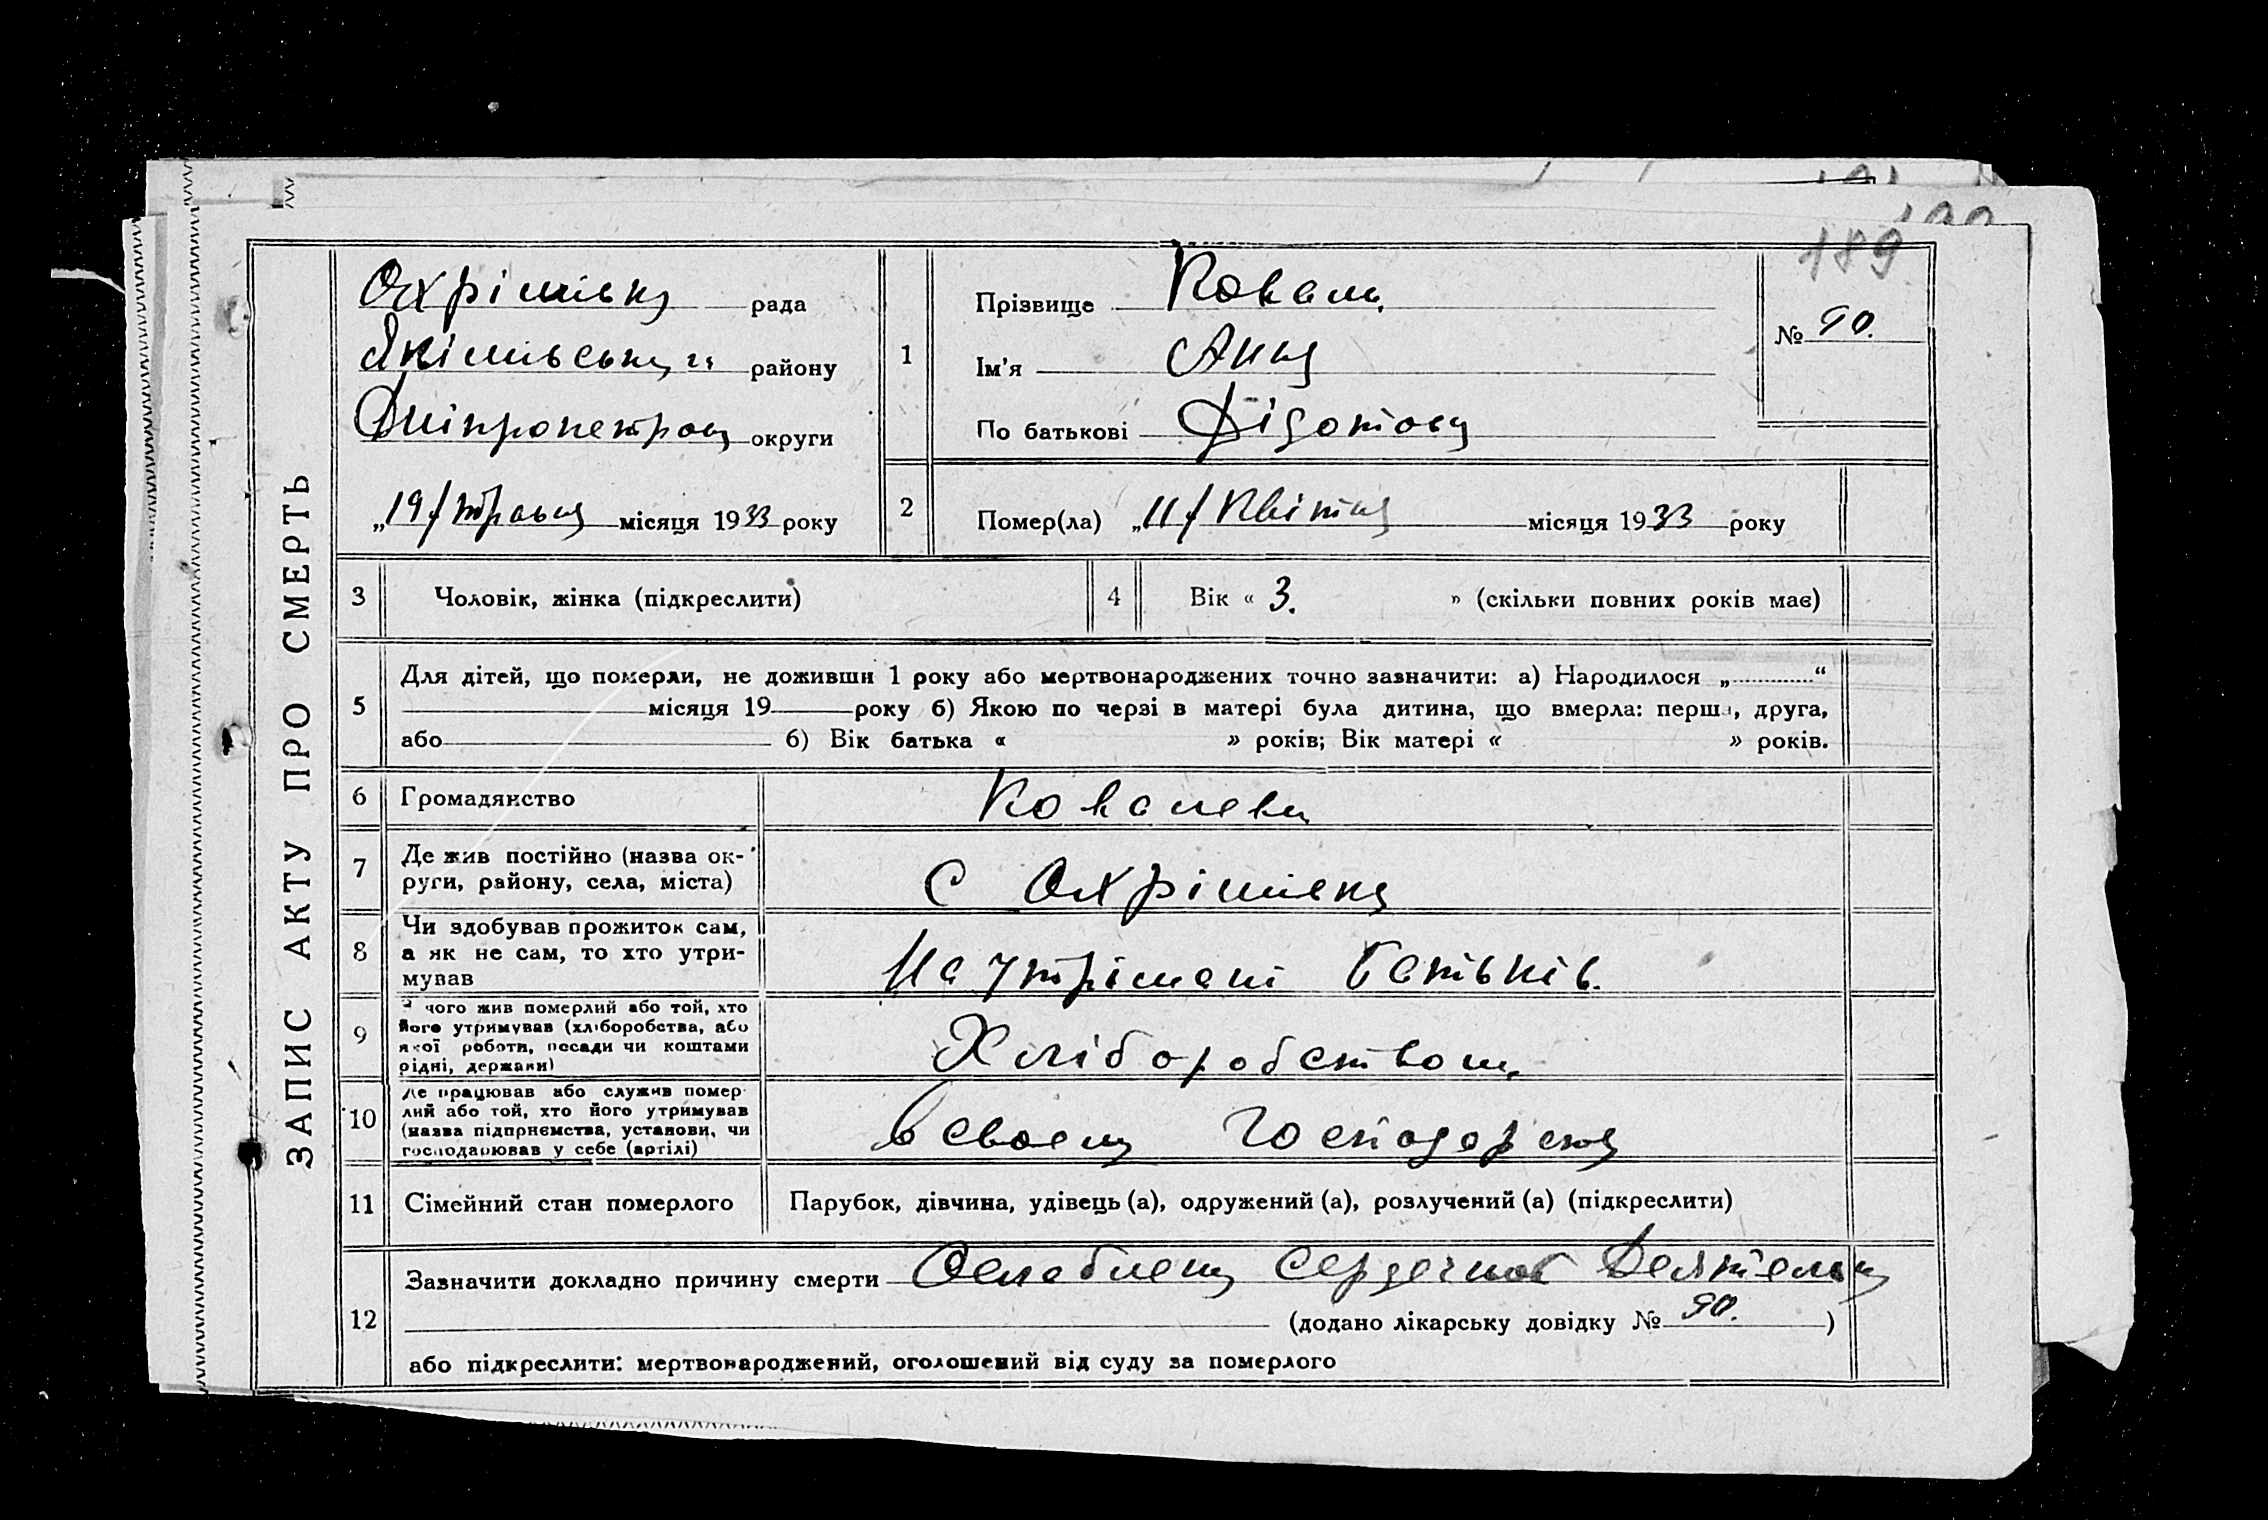 ЗАПИС АКТУ ПРО СМЕРТЬ
189
Охрімівка рада
Якімівськаго району
Дніпропетровщ округи
„19/травня місяця 1933 року
1
Прізвище Коваль
Ім'я Анна
По батькові Дідотова
№ 90.
2
Помер(ла) „11/ Квітня місяця 1933 року
3 Чоловік, жінка (підкреслити)
4 Вік « 3. » (скільки повних років має)
5
Для дітей, що померли, не доживши 1 року або мертвонароджених точно зазначити: а) Народилося „ “
місяця 19 року б) Якою по черзі в матері була дитина, що вмерла: перша, друга,
або б) Вік батька « » років; Вік матері « » років.
6 Громадянство
7 Де жив постійно (назва ок-
руги, району, села, міста) с Охрімівка
8 Чи здобував прожиток сам,
а як не сам, то хто утри-
мував На утрімані батьків.
9 З чого жив померлий або той, хто
його утримував (хліборобства, або
якої роботи, посади чи коштами
рідні, держави) Хліборобством.
10 Де працював або служив помер-
лий або той, хто його утримував
(назва підприємства, установи, чи
господарював у себе (артілі) в своему господарстві
11 Сімейний стан померлого Парубок, дівчина, удівець (а), одружений (а), розлучений (а) (підкреслити)
12
Зазначити докладно причину смерти Ослаблену сердечноє деятельн
(додано лікарську довідку № 90. )
або підкреслити: мертвонароджений, оголошений від суду за померлого